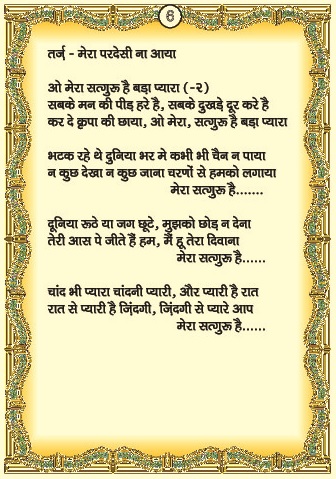 8
तर्ज़ - मेरा परदेसी ना आया
ओ मेरा सत्गुरू है बड़ा प्यारा (-२)
सबके मन की पीड़ हरे है, सबके दुखड़े दूर करे है
कर दे कृपा की छाया, ओ मेरा, सत्गुरू है बड़ा प्यारा
भटक रहे थे दुनिया भर मे कभी भी चैन न पाया
न कुछ देखा न कुछ जाना चरणों से हमको लगाया
मेरा सत्गुरू है.......
दूनिया रूठे या जग छूटे, मुझको छोड़ न देना
तेरी आस पे जीते हैं हम, मैं हू तेरा दिवाना
मेरा सत्गुरू है......
चांद भी प्यारा चांदनी प्यारी, और प्यारी है रात
रात से प्यारी है ज़िंदगी, ज़िंदगी से प्यारे आप
मेरा सत्गुरू है......